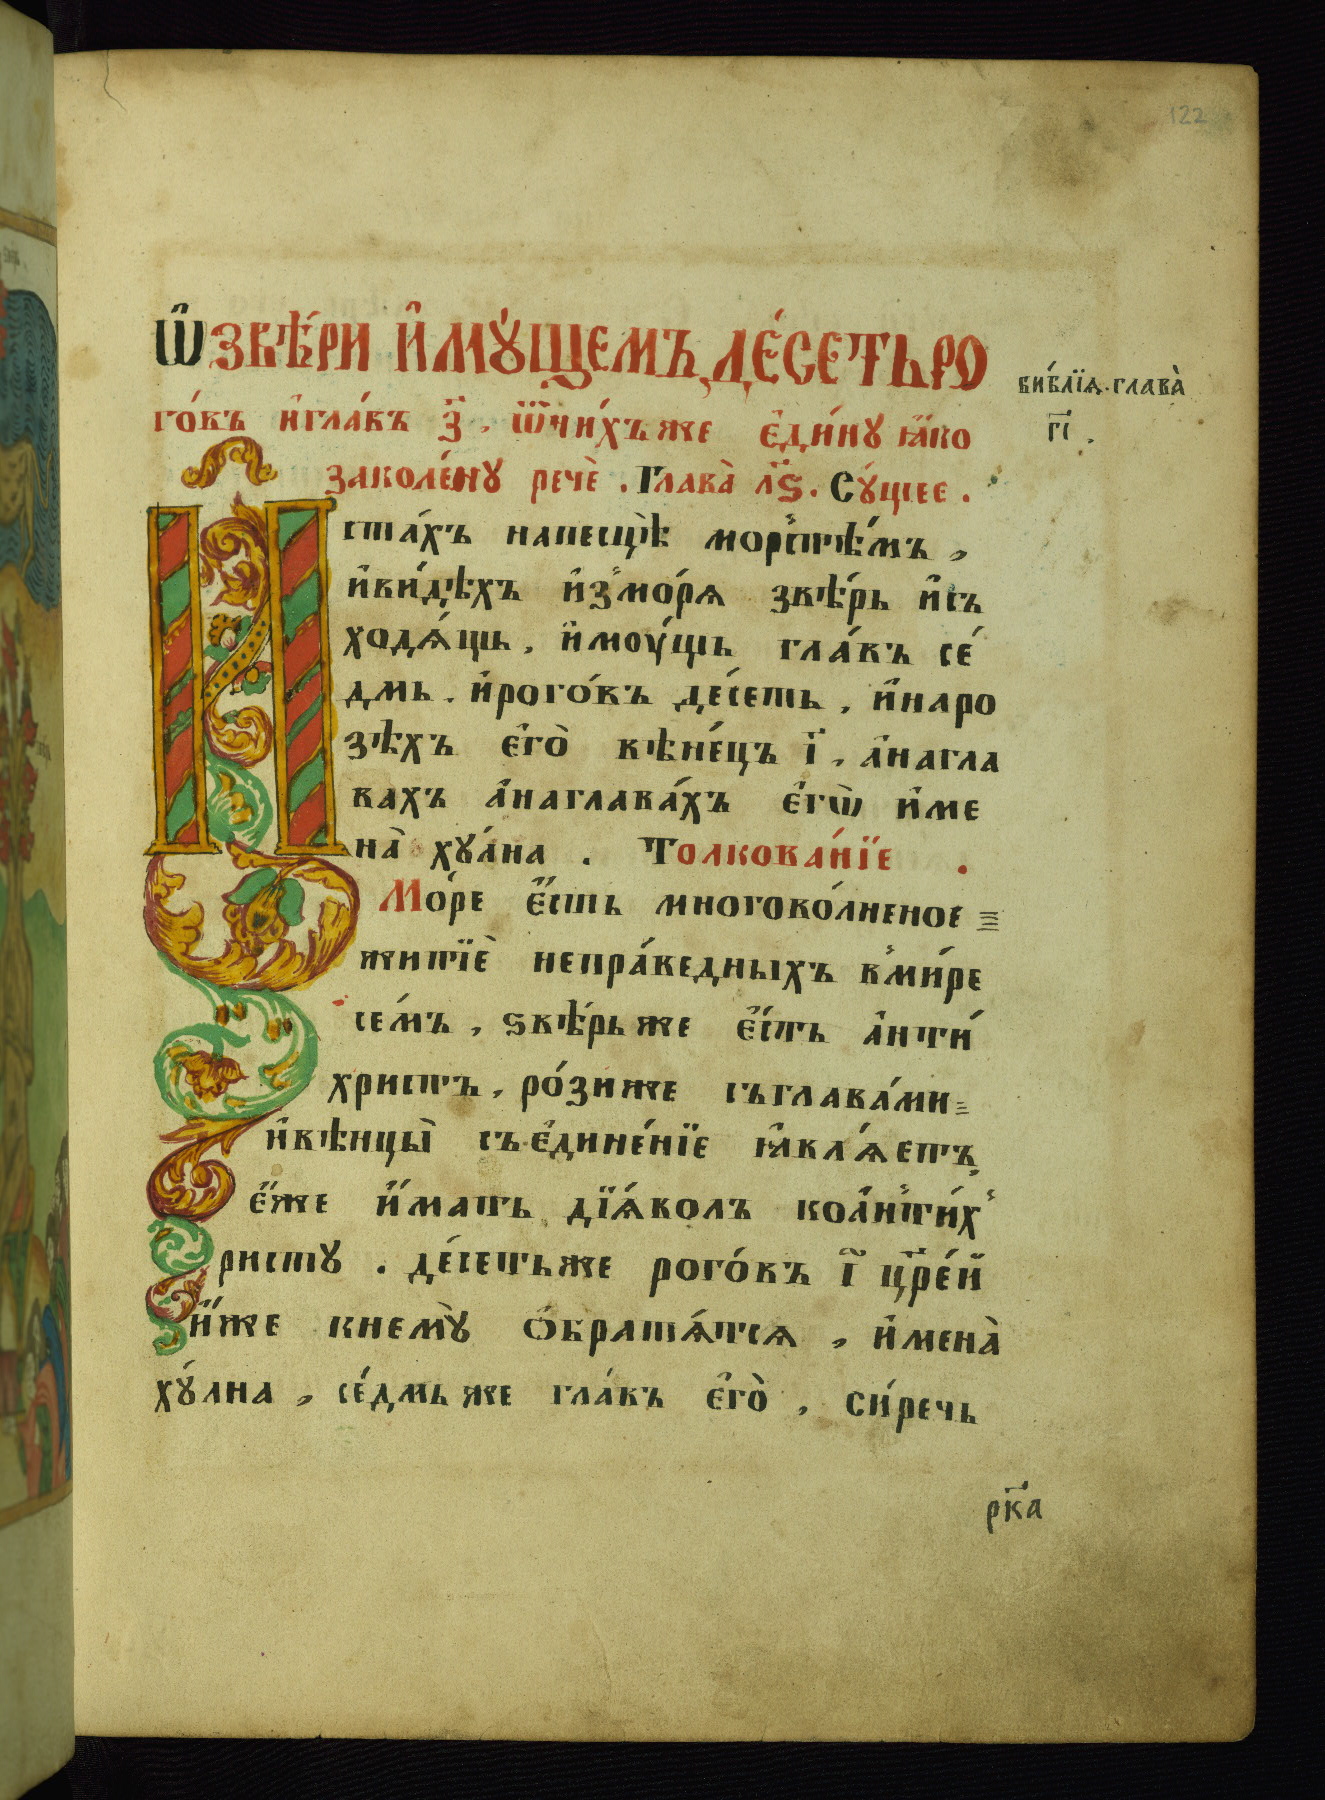 122
Ѽ ЗВѢ́РИ И҆МꙊ́ЩЕМЪ ДЕ́СЕТЬ РО
го́въ и҆ гла́въ з҃. ѿ ни́хъ же є҆ди́нꙋ ꙗ҆́ко
заколе́нꙋ речѐ. Глава̀ л҃ѕ. Сꙋ́щее.
библїѧ. глава̀
г҃і.
И ста́хъ на песцѣ̀ морстѣ́мъ,
и҆ ви́дѣхъ и҆з мо́рѧ звѣ́рь и҆съ
ходѧ́щь, и҆моу́щь гла́въ се́
дмь. и҆ рого́въ де́сеть, и҆ на ро
зѣхъ є҆гѡ̀ вѣне́цъ і҃, а҆ на гла
вахъ а҆ на глава́хъ є҆гѡ̀ и҆ме
на̀ хꙋ́лна. Толкова́нїе.
Мо́ре є҆́сть многоко́лненое
житїѐ непра́ведныхъ в ми́ре
се́мъ, ѕвѣ́рь же є҆́сть а҆нти́
христъ, ро́зи же съ глава́ми
и҆ вѣнцы̀ съ є҆дине́нїе ꙗ҆влѧ́етъ
є҆́же и҆́мать дїѧ́волъ ко а҆нти́х
ристꙋ. де́сеть же рого́въ і҃ цр҃е́й
и҆̀же к немꙋ̀ ѻ҆братѧ́тсѧ, и҆мена̀
хꙋ́лна, се́дмь же гла́въ є҆го̀, си́речь
рк҃а